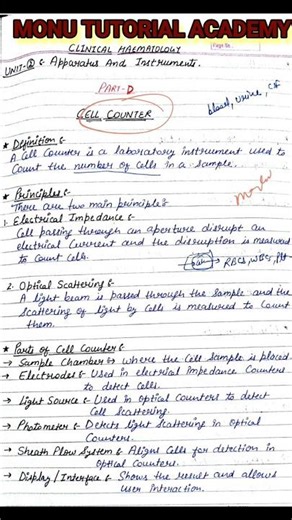 MONU TUTORIAL ACADEMY
CLINICAL HAEMATOLOGY
UNIT-② :- Apparatus And Instruments.
PART-D
blood, urine, CSF
CELL COUNTER
* Definition :-
A Cell Counter is a laboratory instrument used to
Count the number of Cells in a Sample.
* Principles :-
There are two main principle's
1. Electrical Impedance :-
Cell passing through an aperture disrupt an
electrical Current and the disruption is measured
to Count Cells.
RBCs, WBCs, plt
2. Optical Scattering :-
A light beam is passed through the Sample and the
Scattering of light by Cells is measured to Count
them.
* Parts of Cell Counter :-
→ Sample Chamber :- where the Cell Sample is placed.
→ Electrodes :- Used in electrical impedance Counters
to detect Cells.
→ Light Source :- Used in optical Counters to detect
Cell Scattering.
→ Photometer :- Detects light Scattering in Optical
Counters.
→ Sheath Flow System :- Aligns Cells for detection in
optical Counters.
→ Display / Interface :- Shows the result and allows
user interaction.